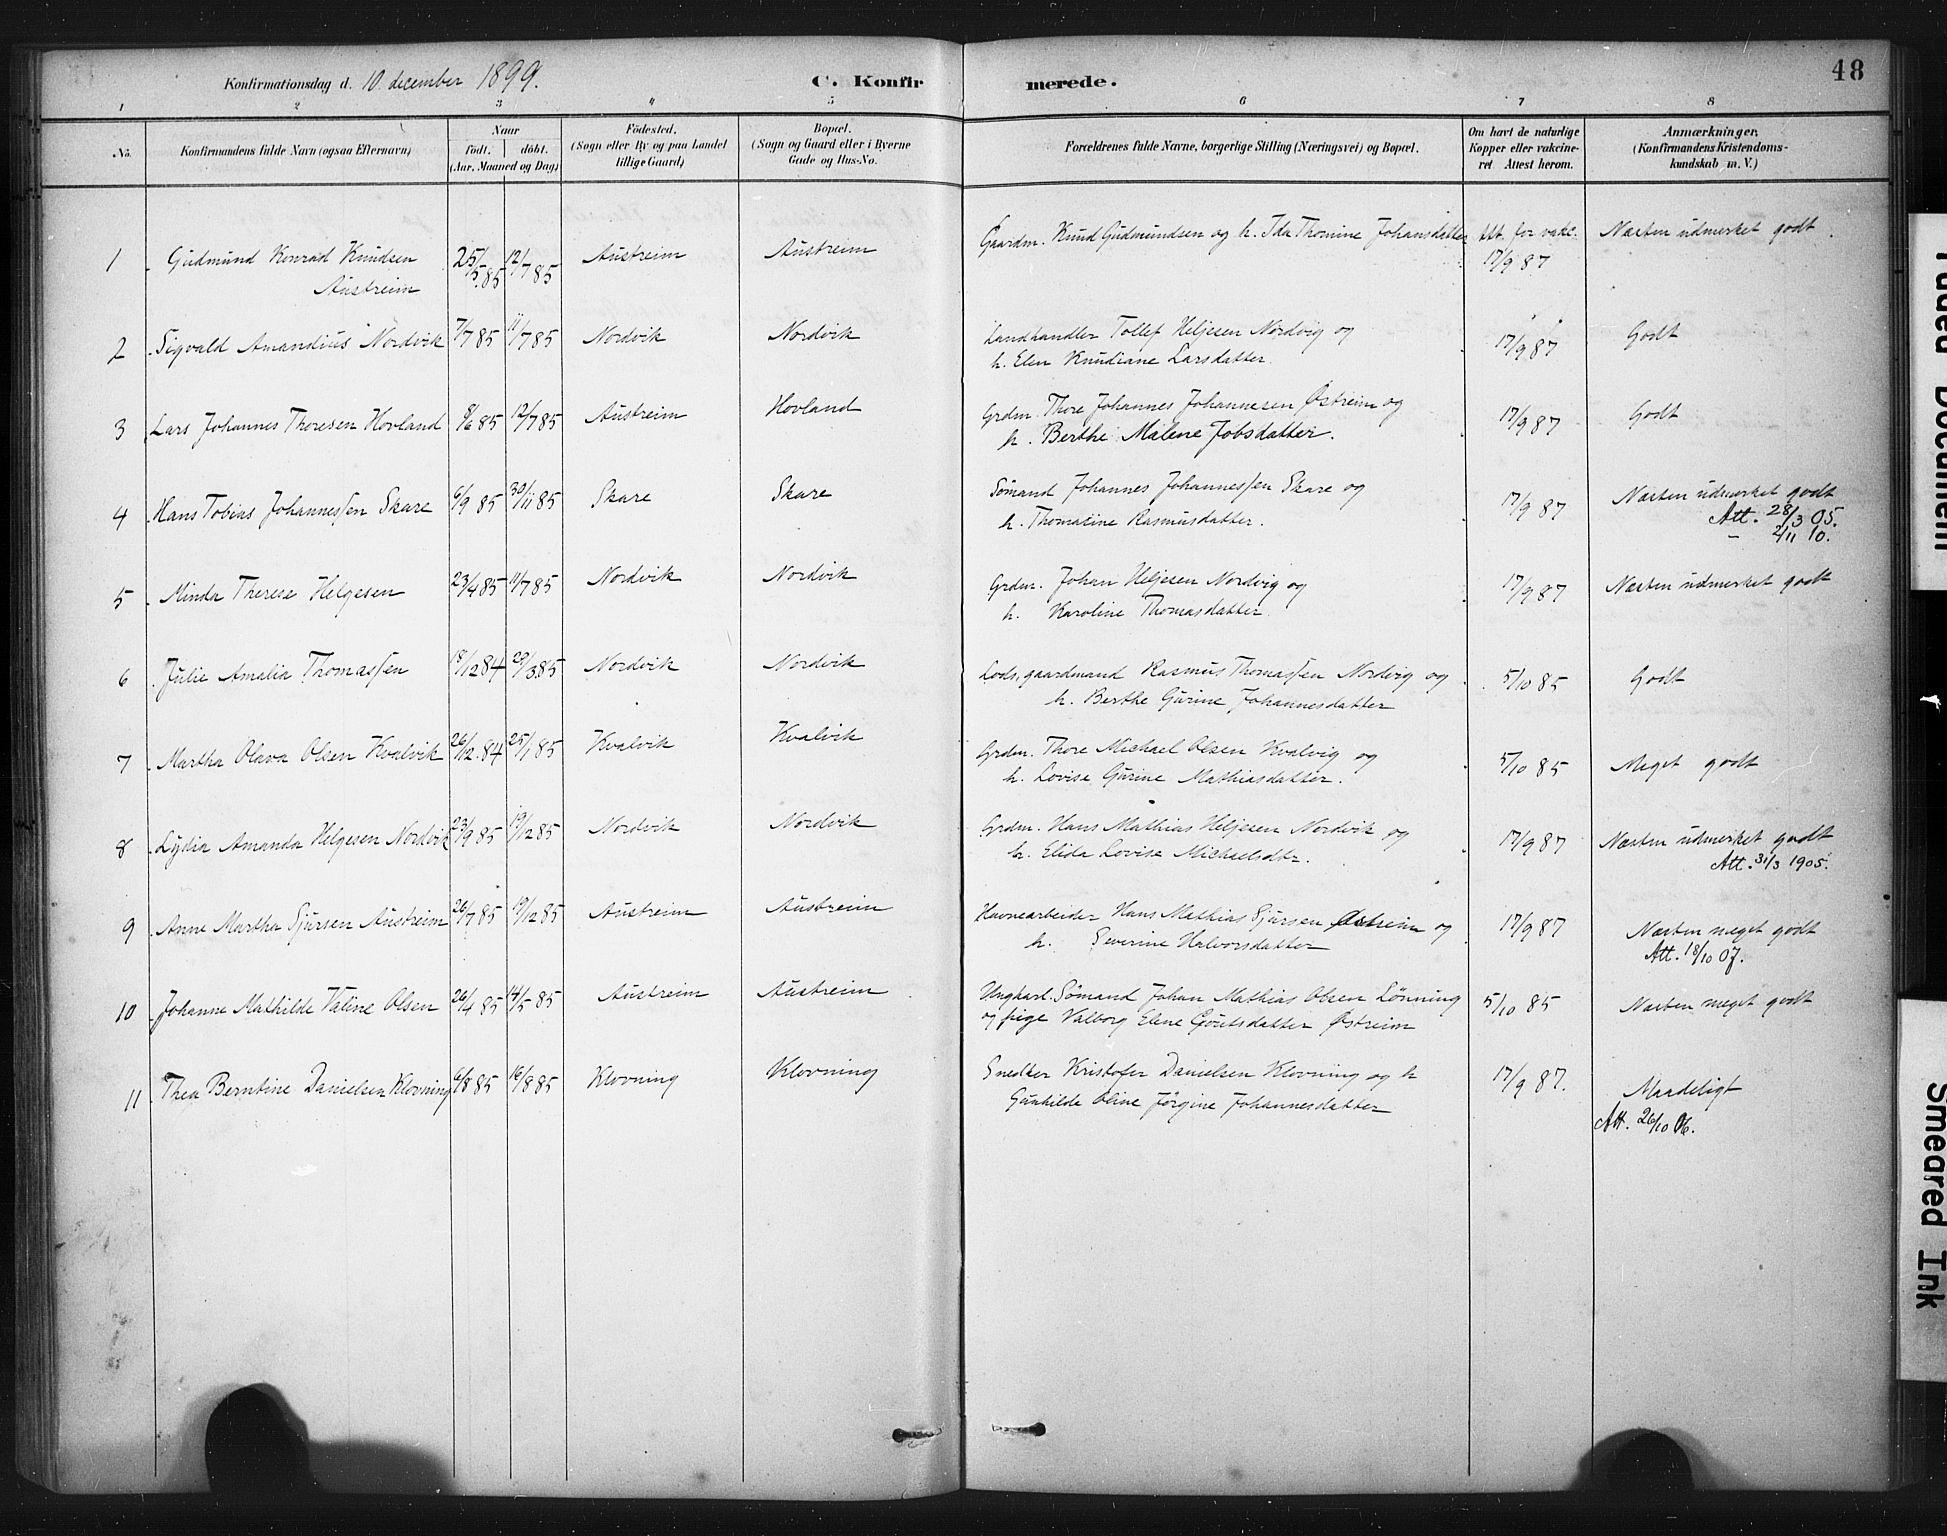 Konfirmationsdag d. 10. december 1899.
C. Konfirmerede.
48
1 2 3 4 5 6 7 8
No.
Konfirmandens fulde Navn (ogsaa Efternavn)
Naar
født. døbt.
(Aar, Maaned og Dag)
Fødested.
(Sogn eller By og paa Landet
tillige Gaard)
Bopæl.
(Sogn og Gaard eller i Byerne
Gade og Hus-No.
Forældrenes fulde Navne, borgerlige Stilling (Næringsvei) og Bopæl.
Om havt de naturlige
Kopper eller vakcine-
ret Attest herom.
Anmærkninger.
(Konfirmandens Kristendoms-
kundskab m. V.)
1 Gudmund Konrad Knudsen 25/5.85 12/7 85 Austreim Austreim Gaardm. Knud Gudmundsen og h. Ida Thomine Johansdatter Att. for vakc. Næsten udmerket godt.
Austreim 17/9 87
2 Sigvald Amandius Nordvik 7/7 85 11/7 85 Nordvik Nordvik Landhandler Tollef Heljesen Nordvig og 17/9 87 Godt
h. Elen Knudiane Larsdatter.
3 Lars Johannes Thoresen Hovland 8/6 85 12/7 85 Austreim Hovland Grdm. Thore Johannes Johannesen Østreim og 17/9 87 Godt
h. Berthe Malene Jobsdatter.
4 Hans Tobias Johannessen Skare 6/9 85 30/11 85 Skare Skare Sømand Johannes Johannessen Skare og 17/9 87 Næsten udmerket godt
h. Thomasine Rasmusdatter. Att. 28/3 05.
- 2/11 10.
5 Minda Therese Helgesen 23/4 85 11/7 85 Nordvik Nordvik Grdm. Johan Heljesen Nordvig og 17/9 87 Næsten udmerket godt
h. Karoline Thomasdatter.
6 Julie Amalia Thomassen 18/12 84 29/3.85 Nordvik Nordvik Lods, gaardmand Rasmus Thomassen Nordvig og 5/10 85 Godt
h. Berthe Gurine Johannesdatter
7 Martha Olava Olsen Kvalvik 26/12.84 25/1 85 Kvalvik Kvalvik Grdm. Thore Michael Olsen Kvalvig og 5/10 85 Meget godt
h. Lovise Gurine Mathiasdatter.
8 Lydia Amanda Helgesen Nordvik 23/9 85 19/12 85 Nordvik Nordvik Grdm. Hans Mathias Heljesen Nordvik og 17/9 87 Næsten udmerket godt
h. Elida Lovise Michaelsdtr. Att. 31/3 1905.
9 Anne Martha Sjursen Austreim 26/7 85 19/12 85 Austreim Austreim Havnearbeider Hans Mathias Sjursen Østreim og 17/9 87 Næsten meget godt
h. Severine Halvorsdatter Att. 18/10 07.
10 Johanne Mathilde Valine Olsen 26/4 85 14/5 85 Austreim Austreim Ungkarl. Sømand Johan Mathias Olsen Lønning 5/10 85 Næsten meget godt
og pige Valborg Elene Gautsdatter Østreim
11 Thea Berntine Danielsen Klovning 6/8 85 16/8 85 Klovning Klovning Snedker Kristofer Danielsen Klovning og h 17/9 87. Maadeligt
Gunhilde Oline Jørgine Johannesdatter Att. 26/10 06.
Faded Document
Smeared Ink